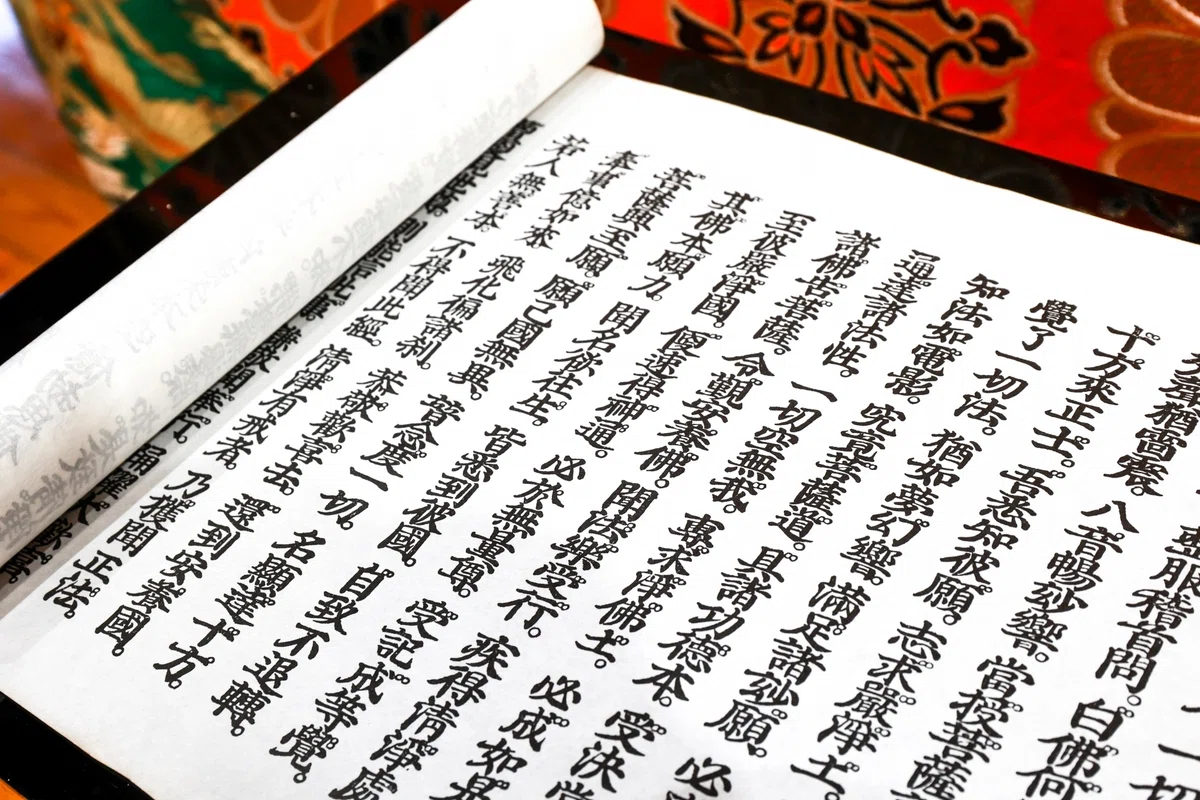 一切
服稽首問。白佛何
聲猶雷震。八音暢妙響。當授菩薩
十方來正士。吾悉知彼願。志求嚴淨土。
覺了一切法。猶如夢幻響。滿足諸妙願。必
知法如電影。究竟菩薩道。具諸功德本。受決當
通達諸法性。一切空無我。專求淨佛土。必成如是
諸佛告菩薩。令覲安養佛。聞法樂受行。疾得清淨處
至彼嚴淨國。便速得神通。必於無量尊。受記成等覺。
其佛本願力。聞名欲往生。皆悉到彼國。自致不退轉。
菩薩興至願。願己國無異。普念度一切。名顯達十方。
奉事億如來。飛化徧諸刹。恭敬歡喜去。還到安養國。
若人無善本。不得聞此經。清淨有戒者。乃獲聞正法。
則能信此事。謙敬聞奉行。踊躍大歡喜。